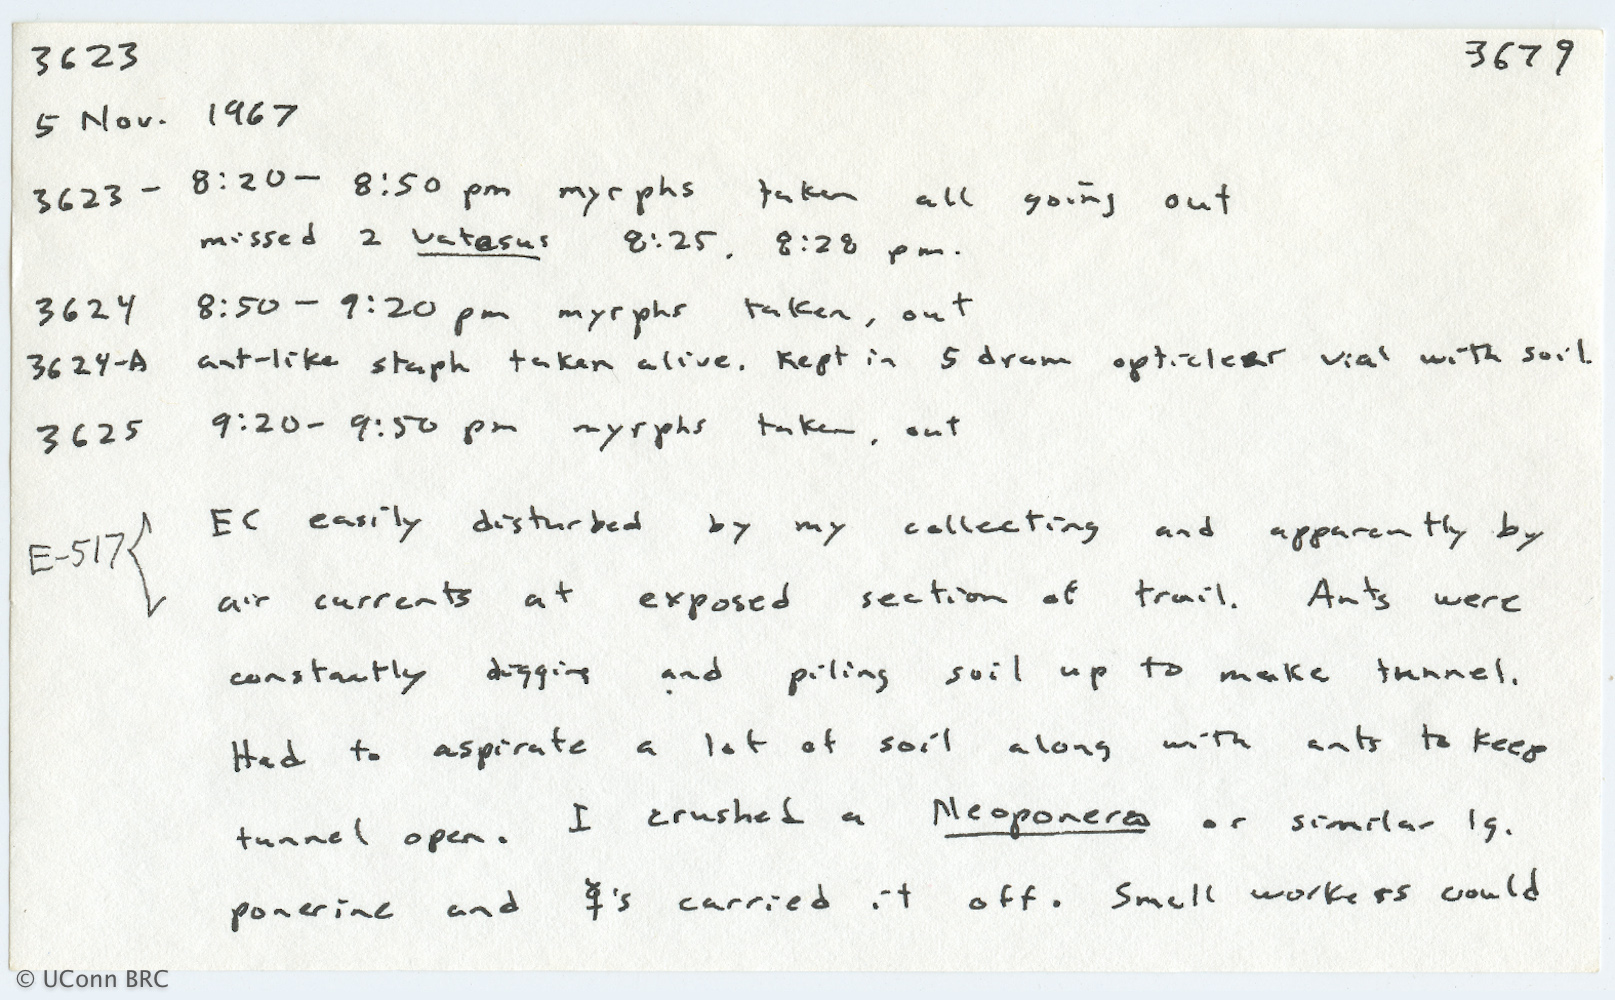 3623 3679
5 Nov. 1967
3623 - 8:20 - 8:50 pm myrphs taken all going out
missed 2 Vatesus 8:25, 8:28 pm.
3624 8:50 - 9:20 pm myrphs taken, out
3624-A ant-like staph taken alive. Kept in 5 dram opticlear vial with soil.
3625 9:20 - 9:50 pm myrphs taken, out
E-517 { EC easily disturbed by my collecting and apparently by
air currents at exposed section of trail. Ants were
constantly digging and piling soil up to make tunnel.
Had to aspirate a lot of soil along with ants to keep
tunnel open. I crushed a Neoponera or similar lg.
ponerine and ☿'s carried it off. Small workers would
© UConn BRC